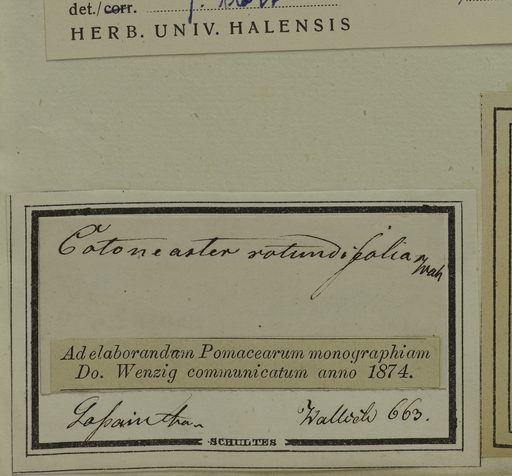 det./corr.
HERB. UNIV. HALENSIS
Cotoneaster rotundifolia Wall
Ad elaborandum Pomacearum monographiam
Do. Wenzig communicatum anno 1874.
Gosaintha. Wallich 663.
SCHULTES